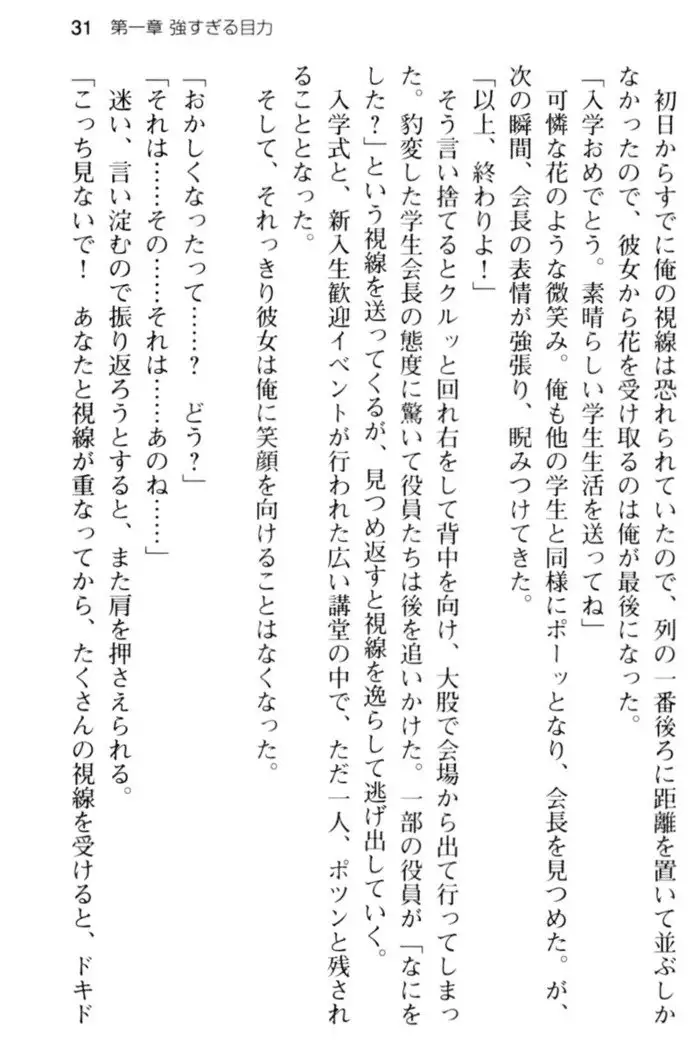 31 第一章 強すぎる目力
　初日からすでに俺の視線は恐れられていたので、列の一番後ろに距離を置いて並ぶしか
なかったので、彼女から花を受け取るのは俺が最後になった。
「入学おめでとう。素晴らしい学生生活を送ってね」
　可憐な花のような微笑み。俺も他の学生と同様にポーッとなり、会長を見つめた。が、
次の瞬間、会長の表情が強張り、睨みつけてきた。
「以上、終わりよ！」
　そう言い捨てるとクルッと回れ右をして背中を向け、大股で会場から出て行ってしまっ
た。豹変した学生会長の態度に驚いて役員たちは後を追いかけた。一部の役員が「なにを
した？」という視線を送ってくるが、見つめ返すと視線を逸らして逃げ出していく。
　入学式と、新入生歓迎イベントが行われた広い講堂の中で、ただ一人、ポツンと残され
ることとなった。
　そして、それっきり彼女は俺に笑顔を向けることはなくなった。
「おかしくなったって……？　どう？」
「それは……その……それは……あのね……」
　迷い、言い淀むので振り返ろうとすると、また肩を押さえられる。
「こっち見ないで！　あなたと視線が重なってから、たくさんの視線を受けると、ドキド